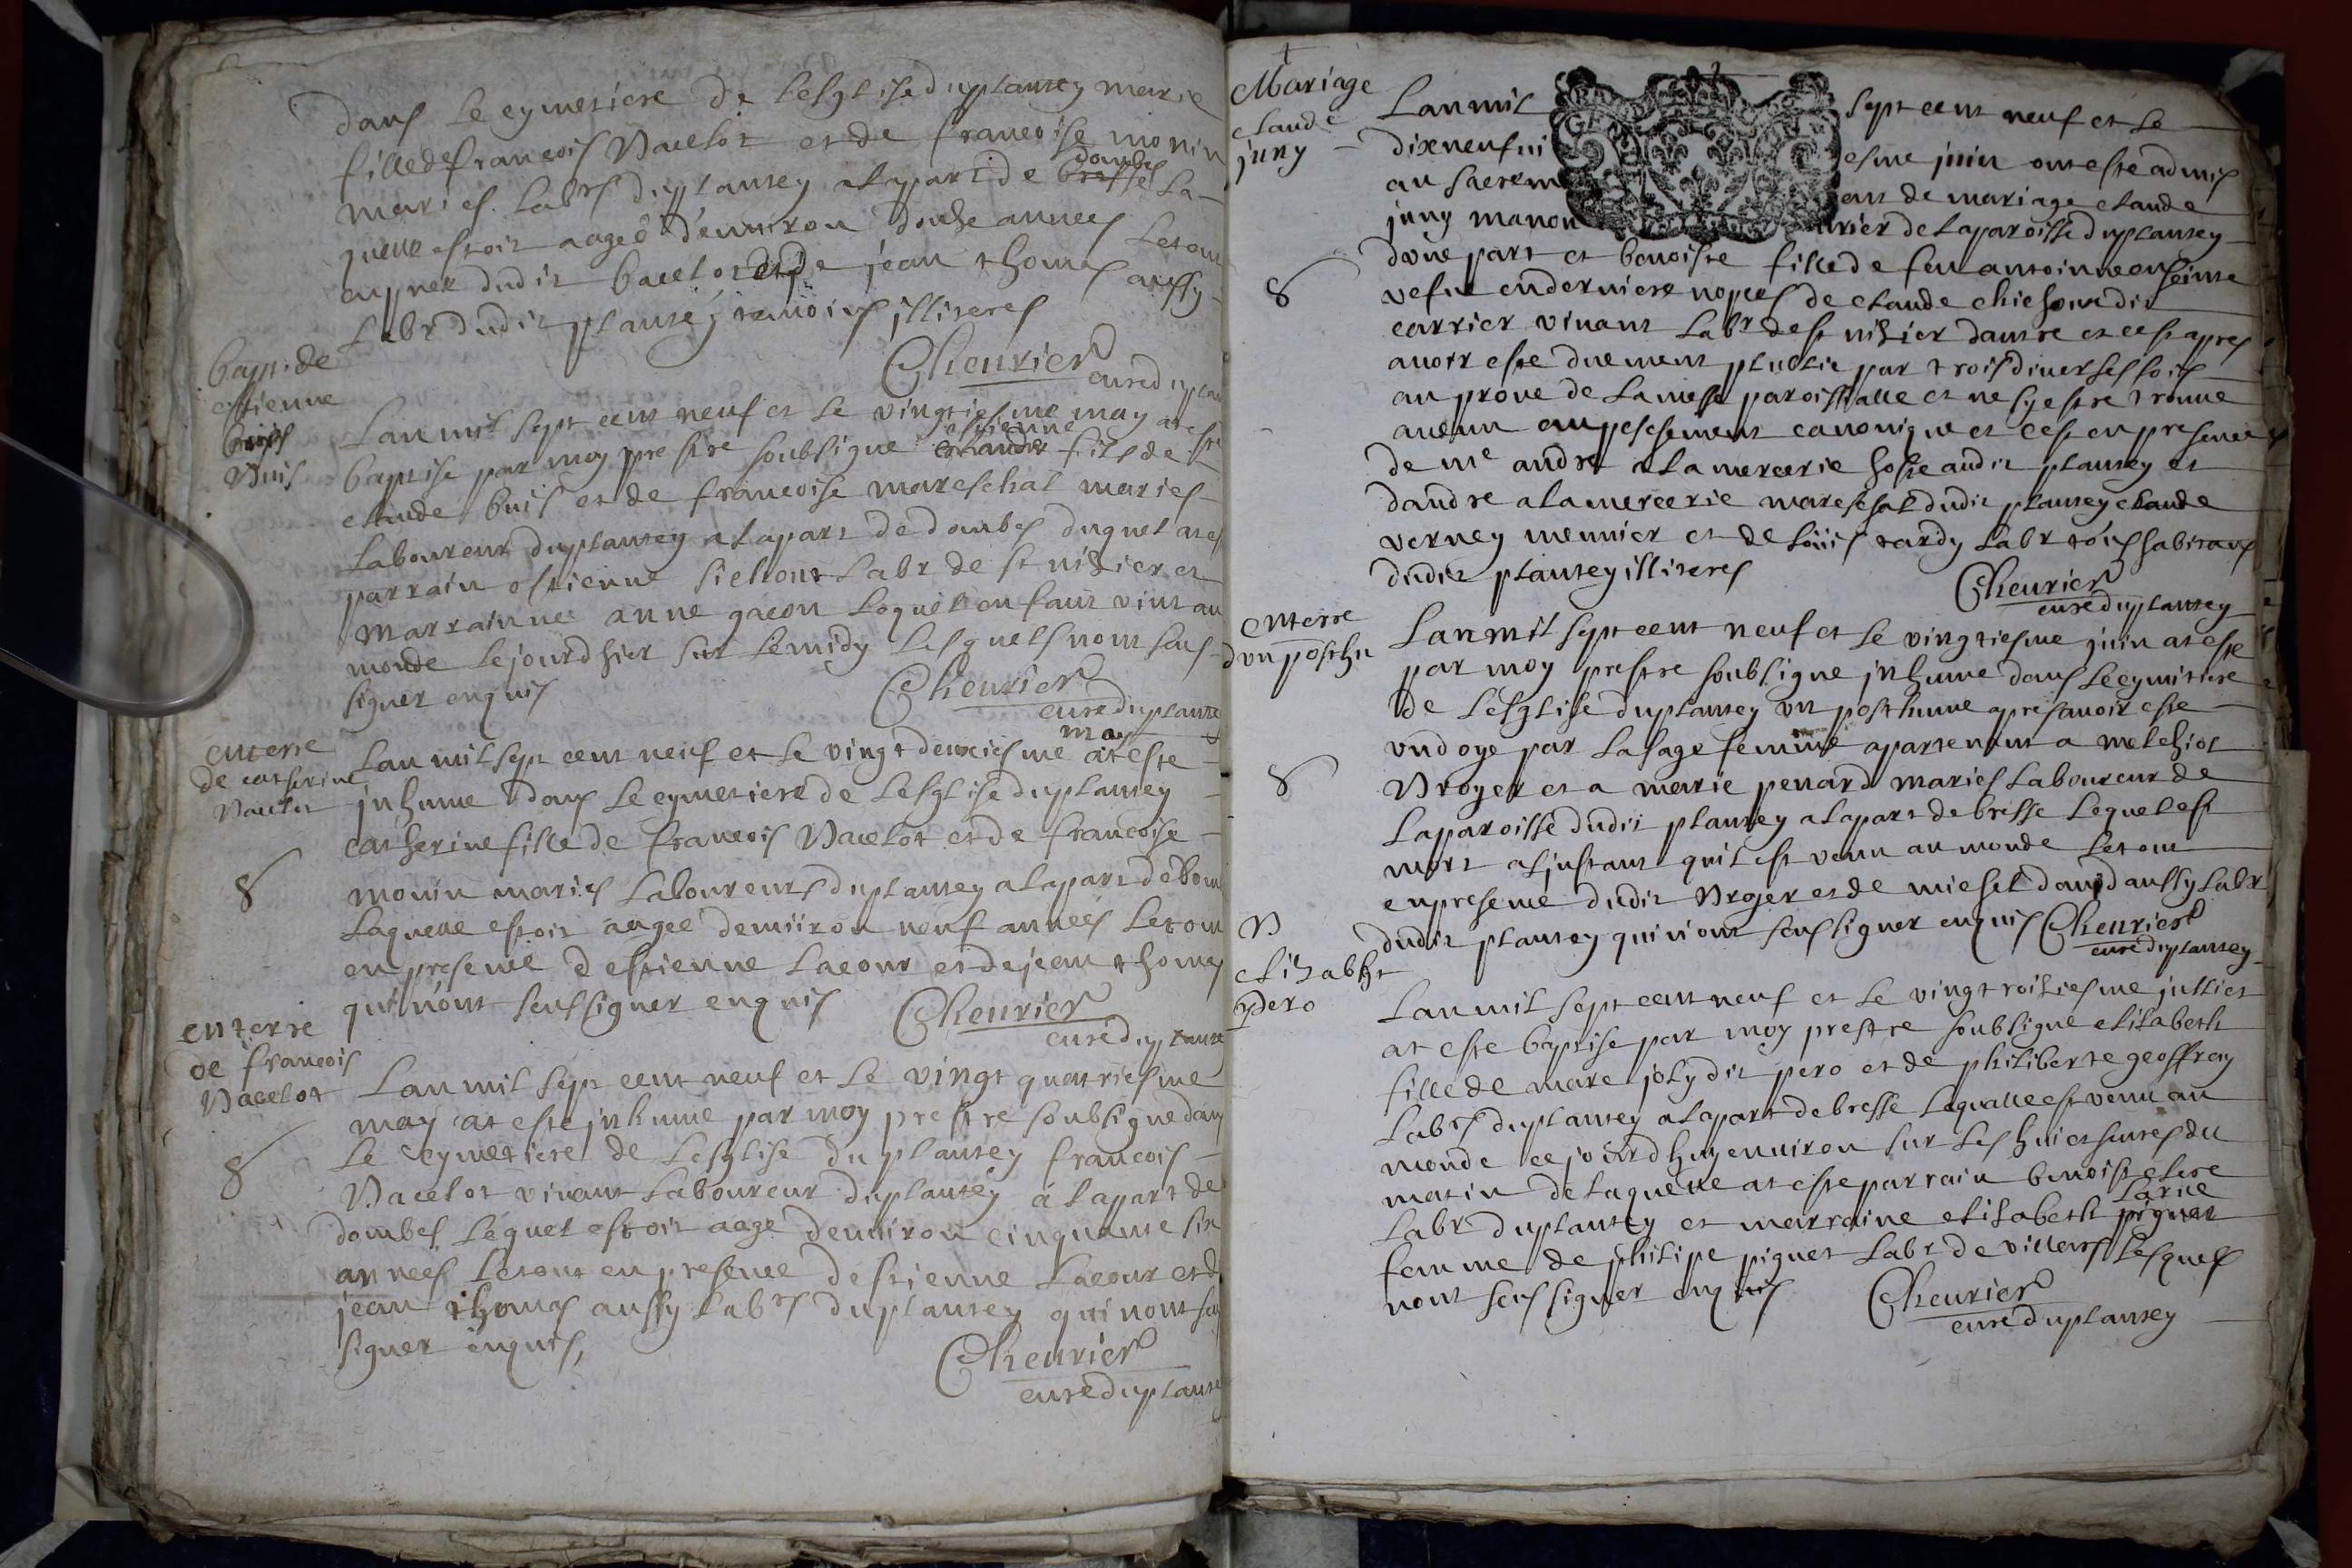 dans le cymetiere de leSglise duplantey marie
fille de francois Vacelot et de francoise monin
maries. labrs duplantey alapart de bresse dombes la-
quelle estoit aagee d'environ douze annees le tout
enpner dudit bacelot et de jean thomas aussy
labr dudit plantey temoins illiteres
Cheurier
curé duplan
bapt. de
estienne
buis
Vuis
Lan mil sept cent neuf et le vingtiesme may at esté
baptise par moy prestre soubsigne claude estienne fils de
claude buis et de francoise mareschal maries
laboureurs duplantey alapart de dombes duquel at es
parrain estienne sichout labr de st nizier et
marrainne anne gacon lequel enfant vint au
monde lejourdhier sur le midy lesquels nont sceu
signer enquis
Cheurier
curé duplante
enterre
de catherine
Vacelot
8
Lan mil sept cent neuf et le vingt deuxiesme may at este
jnhume dans le cymetiere de leSglise duplantey
catherine fille de francois Vacelot et de francoise
monin maries laboureurs duplantey alapart de bom
laquelle estoit aagee denuiron neuf années le tout
en presence destienne lacour et de jean thomas
qui nont sceu signer enquis
Cheurier
curé duplante
enterre
de francois
Vacelot
8
Lan mil sept cent neuf et le vingt quatriesme
may at este jnhume par moy prestre soubsigne dans
le cymetiere de leSglise du plantey francois
Vacelot viuant laboureur duplantey á lapart de
dombes lequel estoit aage denuiron cinquante six
années le tout en presence destienne lacour et de
jean thomas aussy labrs duplantey qui nont sceu
signer enquis,
Cheurier
curé duplante
Mariage
claude
juny
8
Lan mil sept cent neuf et le
dixneufuiesme juin ont esté admis
au sacrement de mariage claude
juny manouurier de laparoisse duplantey
dune part et benoiste fille de feu antoinne
vefue enderniere nopces de claude chichoux dit
carrier viuant labr de st nizier dautre et cest apres
auoir este duement publie par trois diuerses fois
au prone de la messe paroissialle et ne syestre trouue
aucun empeschement canonique et cest en presence
de me andre alamercerie hoste audit plantey et
dandre alamercerie mareschal dudit plantey claude
verney meunier et de loüis tardy labr tous habitans
dudit plantey illiteres
Cheurier
curé duplantey
enterre
dun posthu
8
Lan mil sept cent neuf et le vingtiesme juin at este
par moy prestre soubsigne jnhume dans le cymitiere
de leSglise duplantey un posthume apres auoir este
undoye par la sage femme apartenant a melchiot
Vroyer et a marie penard maries laboureur de
laparoisse dudit plantey alapart de bresse lequel est
mort aljnstant quil est venu au monde le tout
enpresence dudit Vroyer et de michel dauid aussy labr
dudit plantey qui nont sceu signer enquis Cheurier
curé duplantey
V
elizabht
pero
Lan mil sept cent neuf et le vingtroisiesme julliet
at este baptise par moy prestre soubsigne elisabeth
fille de marc joly dit pero et de philiberte geoffray
labrs duplantey alapart de bresse laqualle est venu au
monde ce jourdhuy enuiron sur les huict heures du
matin de laquelle at este parrain benoist clere
labr duplantey et marraine elisabeth piguet
femme de philipe piguet labr de villars lesquels
nont sceu signer enquis
Cheurier
curé duplantey